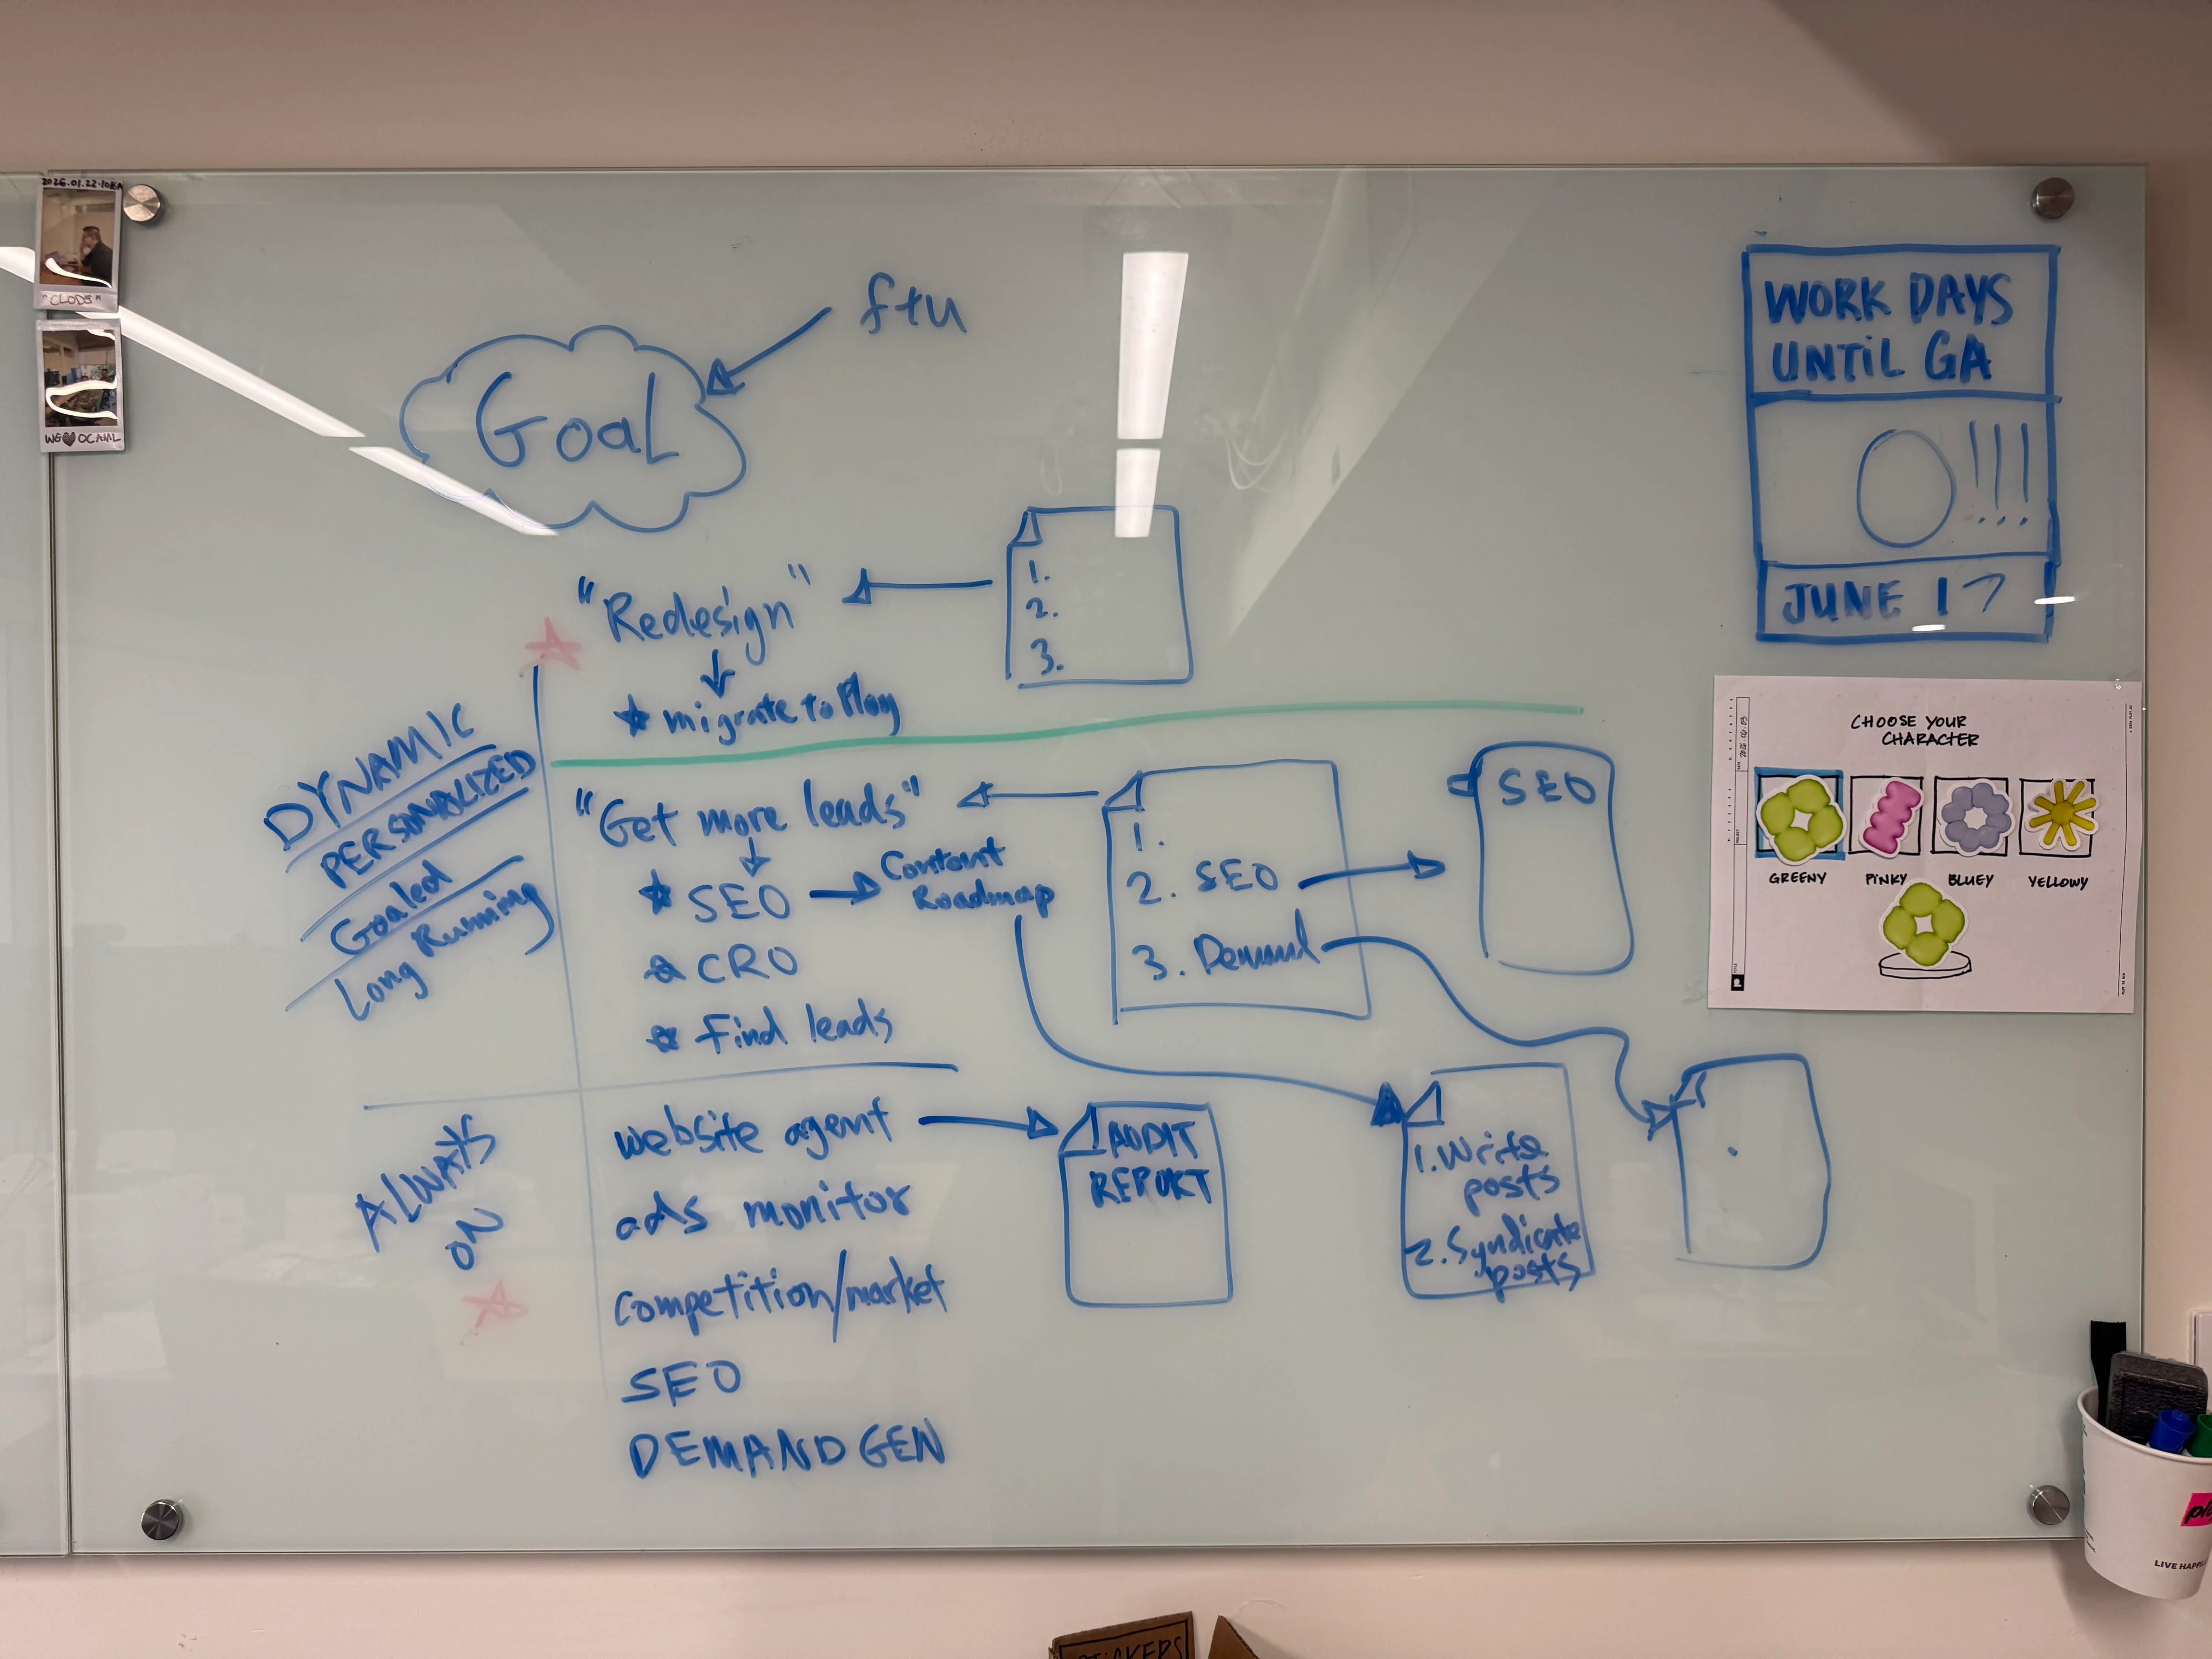 2026.01.22.
"CLODS"
WE ♥ OCAML
ftu
Goal
WORK DAYS
UNTIL GA
0!!!
JUNE 17
"Redesign"
★ migrate to Play
1.
2.
3.
DYNAMIC
PERSONALIZED
Goaled
Long Running
"Get more leads"
★ SEO
Content
Roadmap
★ CRO
★ Find leads
1.
2. SEO
3. Demand
SEO
CHOOSE YOUR
CHARACTER
GREENY
PINKY
BLUEY
YELLOWY
ALWAYS
ON
website agent
ads monitor
competition/market
SEO
DEMAND GEN
AUDIT
REPORT
1. Write
posts
2. Syndicate
posts
LIVE
STICKERS